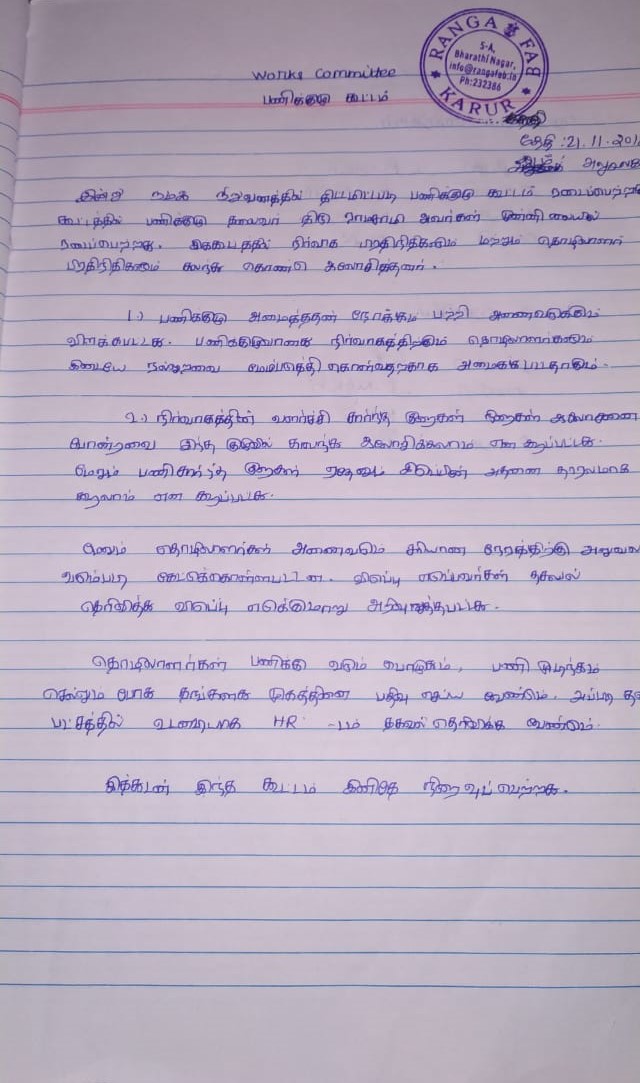 RANGA FAB
5-A,
Bharathi Nagar,
info@rangafab.in
Ph:232386
KARUR
Works Committee
பணிக்குழு கூட்டம்
தேதி : 21.11.201
இன்று நமது நிறுவனத்தில் திட்டமிட்டபடி பணிக்குழு கூட்டம் நடைபெற்றது
கூட்டத்தில் பணிக்குழு தலைவர் திரு அவர்கள் முன்னிலையில்
நடைபெற்றது. நிர்வாக பிரதிநிதிகளும் மற்றும் தொழிலாளர்
பிரதிநிதிகளும் கலந்து கொண்டு ஆலோசித்தனர்.
1.) பணிக்குழு அமைத்ததன் நோக்கம் பற்றி அனைவருக்கும்
விளக்கப்பட்டது. பணிக்குழுவானது நிர்வாகத்திற்கும் தொழிலாளர்களும்
இடையே நல்லுறவை மேம்படுத்தி கொள்வதற்காக அமைக்கப்பட்டதாகும்.
2.) நிர்வாகத்தின் வளர்ச்சி சார்ந்த குறைகள் நிறைகள் ஆலோசனை
போன்றவை இந்த குழுவில் கலந்து ஆலோசிக்கலாம் என கூறப்பட்டது.
மேலும் பணிசார்ந்த குறைகள் ஏதேனும் இருப்பின் அதனை தாராளமாக
கூறலாம் என கூறப்பட்டது.
மேலும் தொழிலாளர்கள் அனைவரும் சரியான நேரத்திற்கு அலுவல
வரும்படி கேட்டுக்கொள்ளப்பட்டன. விடுப்பு எடுப்பவர்கள் தகவல்
தெரிவித்து விடுப்பு எடுக்குமாறு அறிவுறுத்தப்பட்டது.
தொழிலாளர்கள் பணிக்கு வரும் பொழுதும், பணி முடிந்தும்
செல்லும் போது தங்களது முகத்தினை பதிவு செய்ய வேண்டும். அப்படி தவ
பட்சத்தில் உடனடியாக HR -யிடம் தகவல் தெரிவிக்க வேண்டும்.
இத்துடன் இந்த கூட்டம் இனிதே நிறைவுப் பெற்றது.